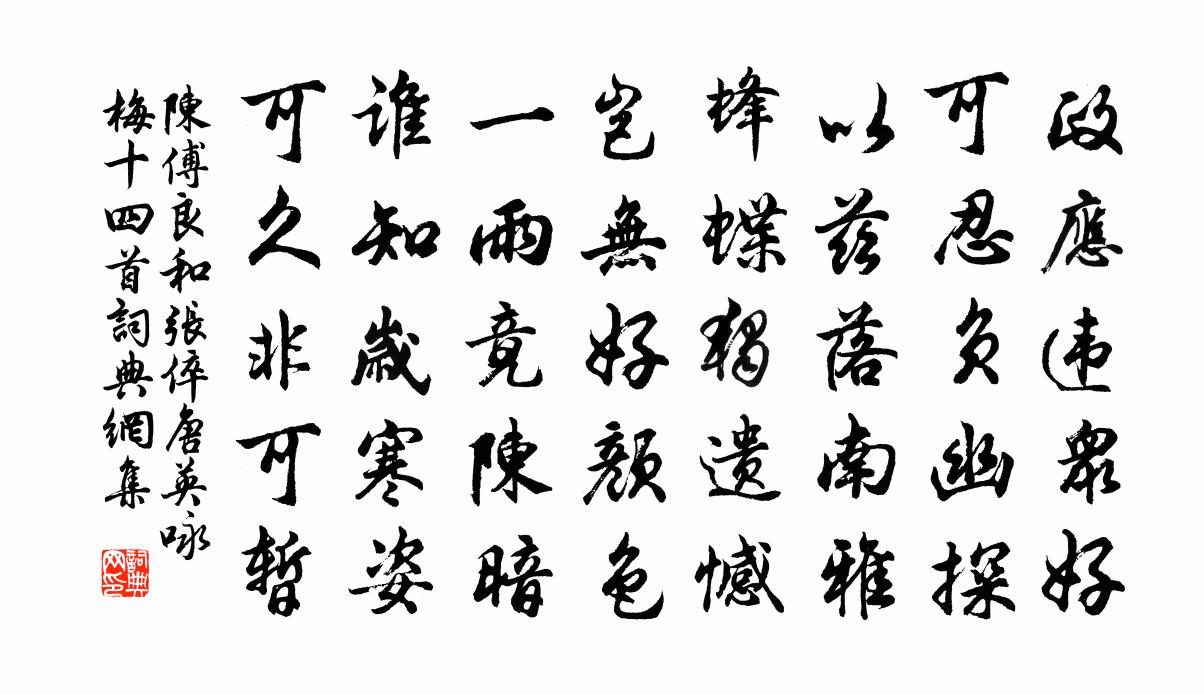 政應违眾好
可忍負幽探
以兹落南雅
蜂蝶獨遺憾
岂無好顏色
一雨竟陳暗
誰知歲寒姿
可久非可暫
陳傅良和張倅唐英咏
梅十四首詞典網集
詞典网印